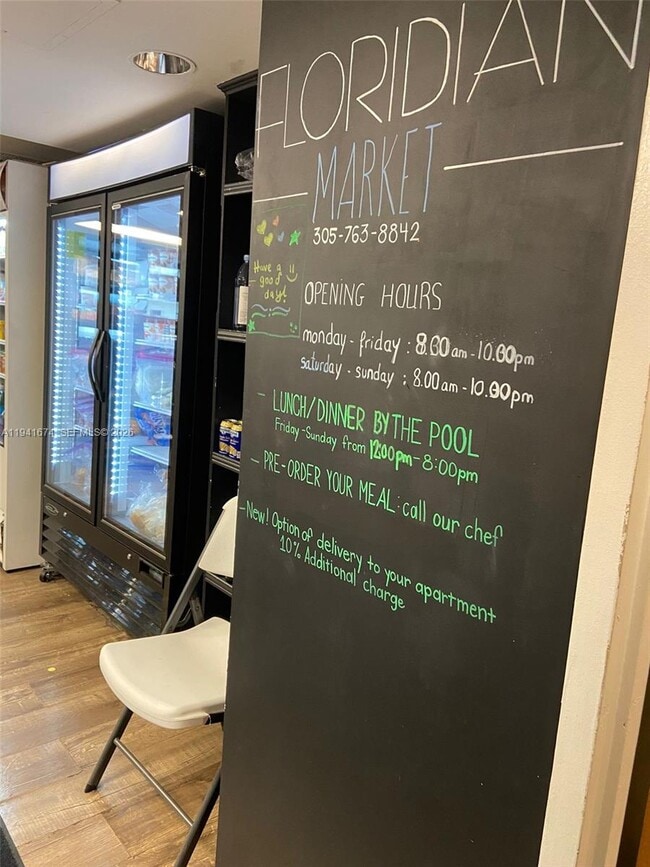 FLORIDIAN
MARKET
305-763-8842
Have a
good
day!
OPENING HOURS
monday - friday : 8.00am - 10.00pm
saturday - sunday : 8.00am - 10.00pm
- LUNCH/DINNER BY THE POOL
Friday - Sunday from 12:00pm - 8:00pm
- PRE-ORDER YOUR MEAL: call our chef
- New! Option of delivery to your apartment
10% Additional charge
A11941674 SEFMLS © 2026